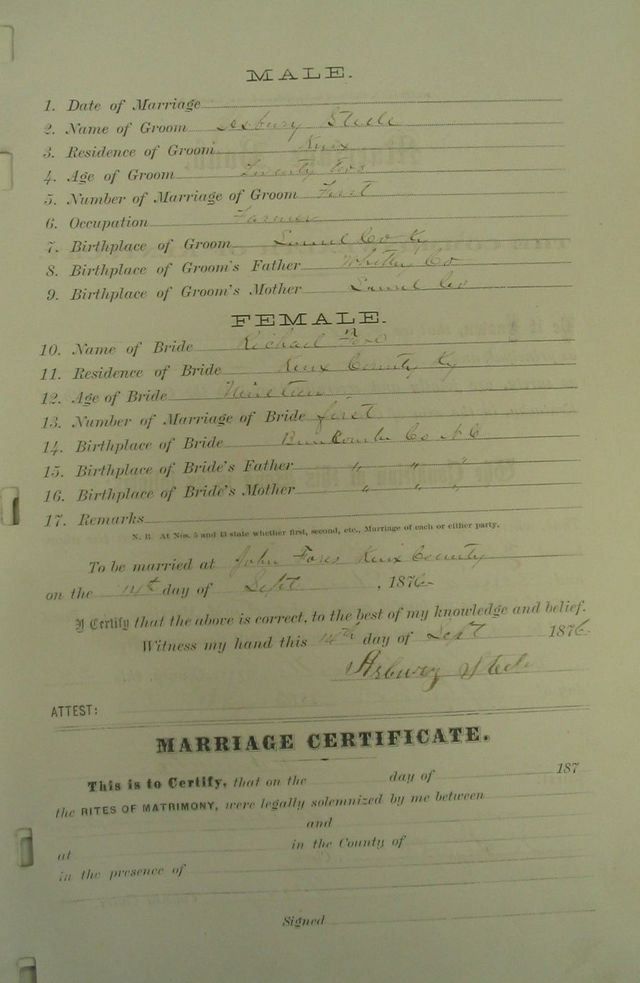 MALE.
1. Date of Marriage
2. Name of Groom Asbury Steele
3. Residence of Groom Knox
4. Age of Groom Twenty two
5. Number of Marriage of Groom First
6. Occupation Farmer
7. Birthplace of Groom Laurel Co Ky
8. Birthplace of Groom's Father Whitley Co
9. Birthplace of Groom's Mother Laurel Co
FEMALE.
10. Name of Bride Richael
11. Residence of Bride Knox County Ky
12. Age of Bride Nineteen
13. Number of Marriage of Bride first
14. Birthplace of Bride Buncombe Co N C
15. Birthplace of Bride's Father " " "
16. Birthplace of Bride's Mother " " "
17. Remarks
N. B. At Nos. 5 and 13 state whether first, second, etc., Marriage of each or either party.
To be married at John Fores Knox County
on the 14th day of Sept , 1876
I Certify that the above is correct, to the best of my knowledge and belief.
Witness my hand this 14th day of Sept 1876
Asbury Steele
ATTEST:
MARRIAGE CERTIFICATE.
This is to Certify, that on the day of 187
the RITES OF MATRIMONY, were legally solemnized by me between
and
at in the County of
in the presence of
Signed